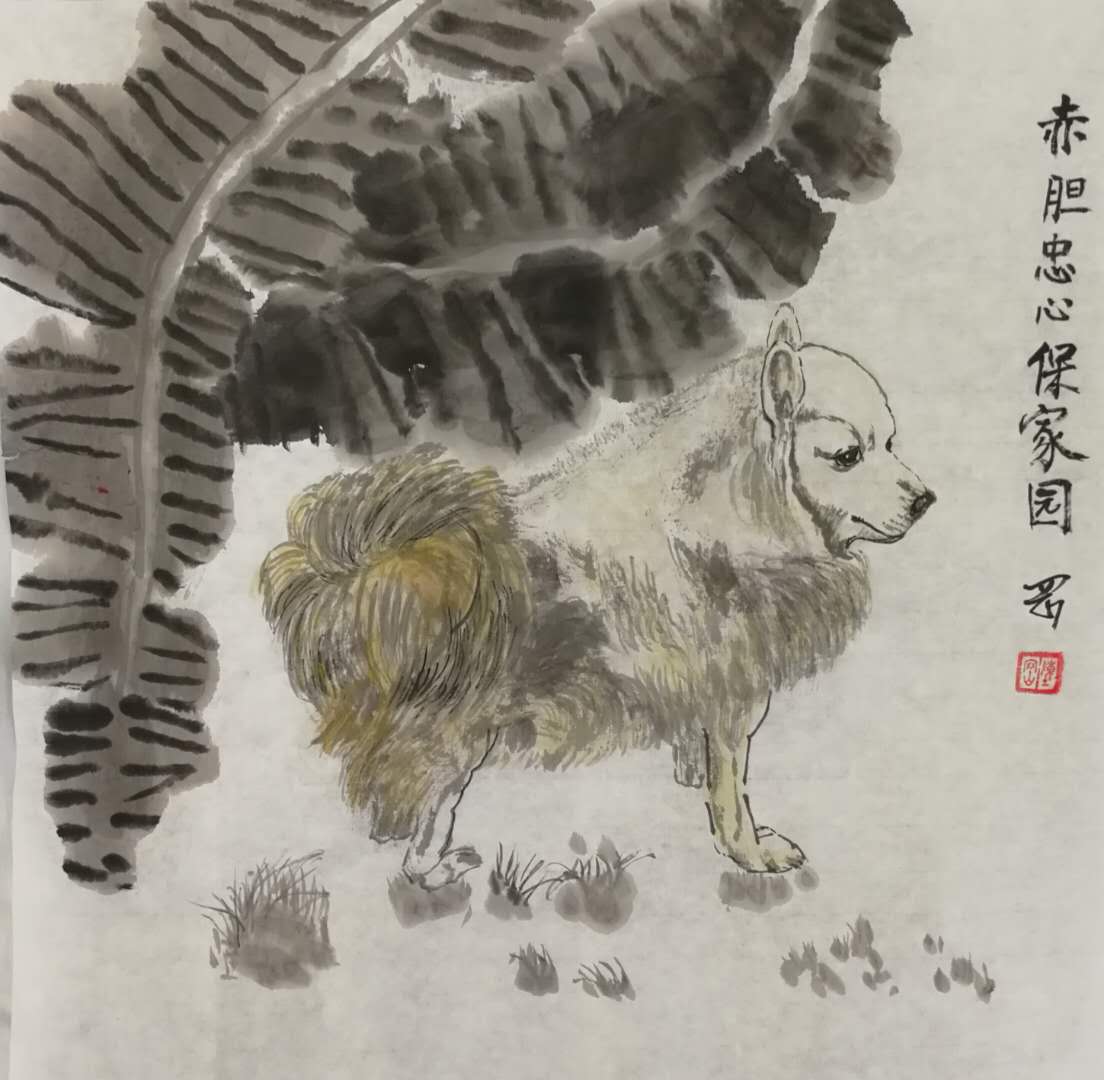 赤胆忠心保家园